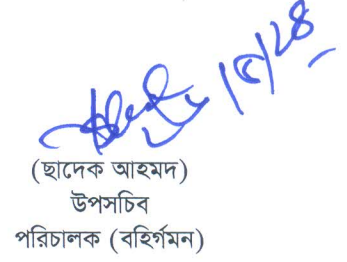 (ছাদেক আহমদ)
উপসচিব
পরিচালক (বহির্গমন)